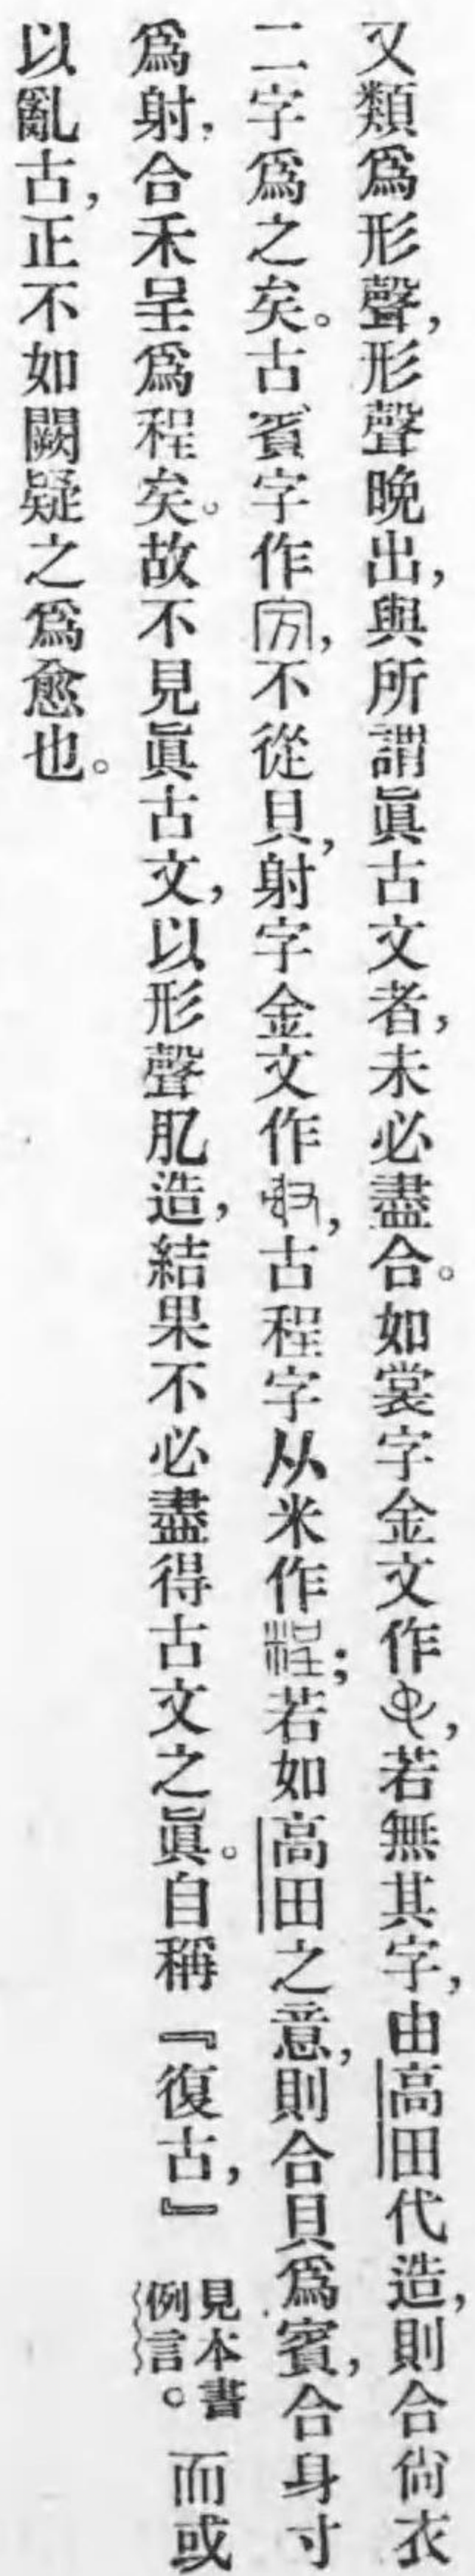 又類爲形聲，形聲晚出，與所謂眞古文者，未必盡合。如裳字金文作，若無其字，由高田代造，則合尙衣
二字爲之矣。古賓字作，不從貝，射字金文作，古程字从米作；若如高田之意，則合貝爲賓，合身寸
爲射，合禾呈爲程矣。故不見眞古文，以形聲肊造，結果不必盡得古文之眞。自稱『復古，』見本書例言。而或
以亂古，正不如闕疑之爲愈也。